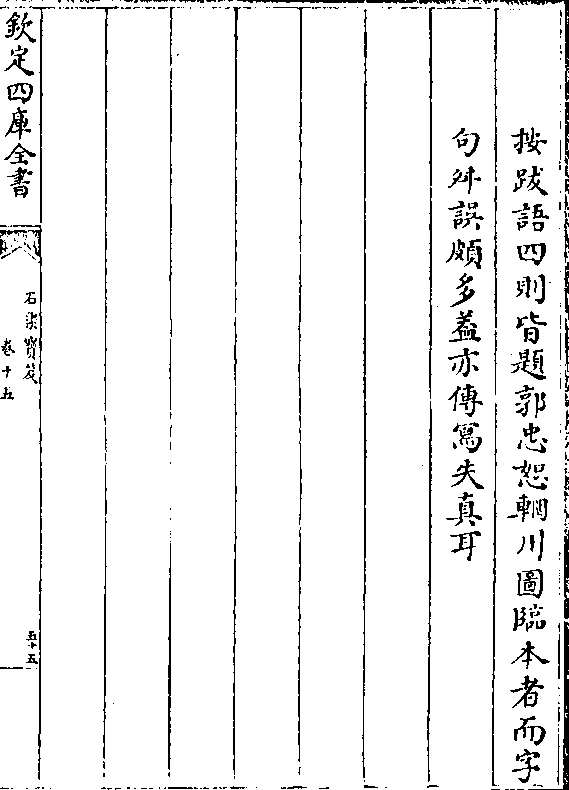 按跋語四則皆題郭忠恕輞川圖臨本者而字
句舛誤頗多蓋亦傳寫失真耳
欽定四庫全書
石渠寶笈
卷十五
五十五